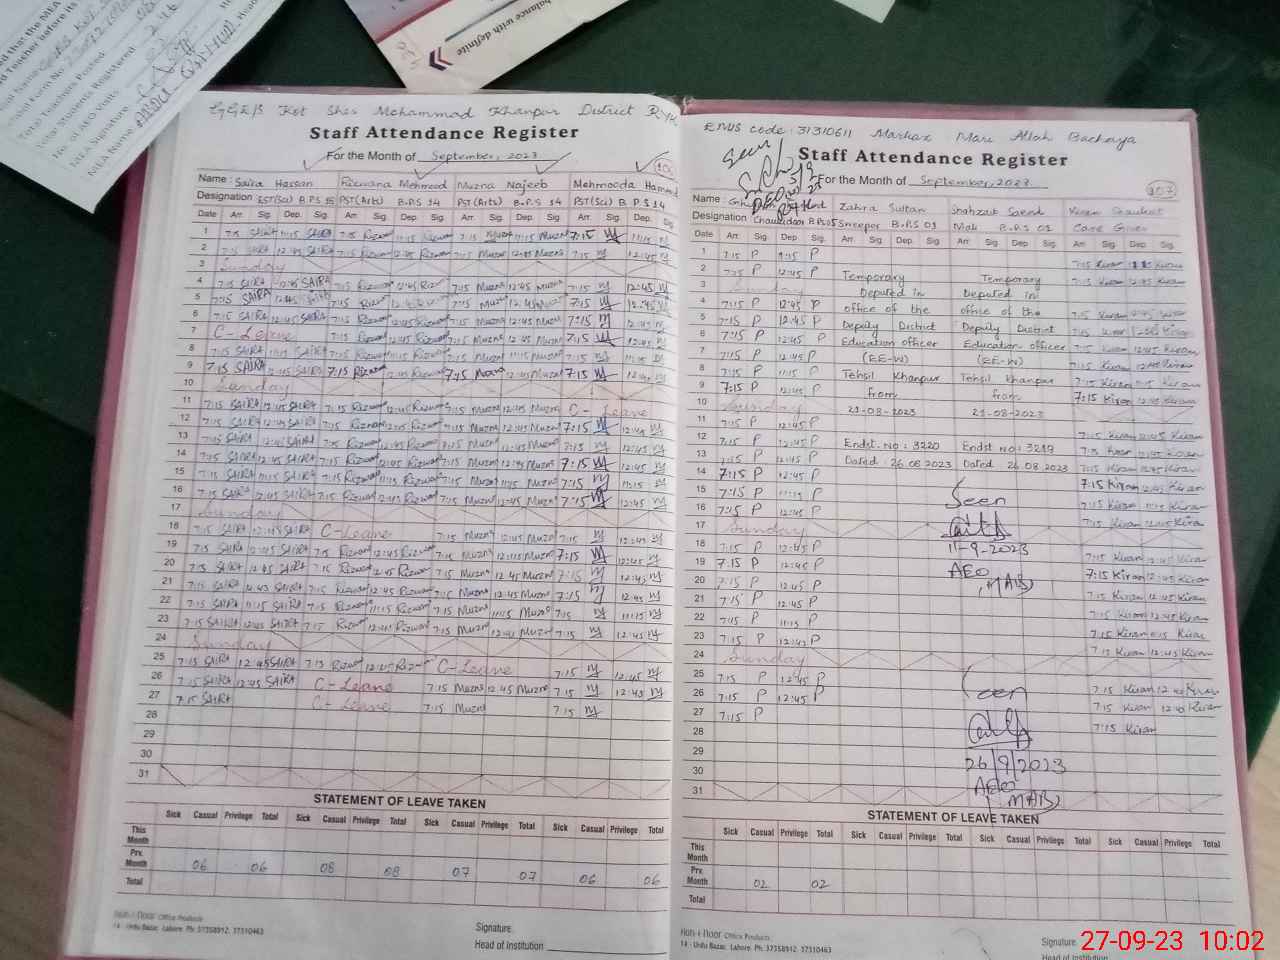 balance with definite
GGES Kot Sher Mohammad Khanpur District RYK
Staff Attendance Register
For the Month of September, 2023
106
Name: Saira Hassan Rizwana Mehmood Muzna Najeeb Mehmooda
Designation EST(Sci) B.P.S 15 PST(Arts) B.P.S 14 PST(Arts) B.P.S 14 PST(Sci) B.P.S 14
Date Arr. Sig. Dep. Sig. Arr. Sig. Dep. Sig. Arr. Sig. Dep. Sig. Arr. Sig. Dep. Sig.
1 7:15 SAIRA 11:15 SAIRA 7:15 Rizwan 11:15 Rizwan 7:15 Muzna 11:15 Muzna 7:15 M 11:15 M
2 7:15 SAIRA 12:45 SAIRA 7:15 Rizwan 12:45 Rizwan 7:15 Muzna 12:45 Muzna 7:15 M 12:45 M
3 Sunday
4 7:15 SAIRA 12:45 SAIRA 7:15 Rizwan 12:45 Rizwan 7:15 Muzna 12:45 Muzna 7:15 M 12:45 M
5 7:15 SAIRA 12:45 SAIRA 7:15 Rizwan 12:45 Rizwan 7:15 Muzna 12:45 Muzna 7:15 M 12:45 M
6 7:15 SAIRA 12:45 SAIRA 7:15 Rizwan 12:45 Rizwan 7:15 Muzna 12:45 Muzna 7:15 M 12:45 M
7 C-Leave 7:15 Rizwan 12:45 Rizwan 7:15 Muzna 12:45 Muzna 7:15 M 12:45 M
8 7:15 SAIRA 11:15 SAIRA 7:15 Rizwan 11:15 Rizwan 7:15 Muzna 11:15 Muzna 7:15 M 11:15 M
9 7:15 SAIRA 12:45 SAIRA 7:15 Rizwan 12:45 Rizwan 7:15 Muzna 12:45 Muzna 7:15 M 12:45 M
10 Sunday
11 7:15 SAIRA 12:45 SAIRA 7:15 Rizwan 12:45 Rizwan 7:15 Muzna 12:45 Muzna C-Leave
12 7:15 SAIRA 12:45 SAIRA 7:15 Rizwan 12:45 Rizwan 7:15 Muzna 12:45 Muzna 7:15 M 12:45 M
13 7:15 SAIRA 12:45 SAIRA 7:15 Rizwan 12:45 Rizwan 7:15 Muzna 12:45 Muzna 7:15 M 12:45 M
14 7:15 SAIRA 12:45 SAIRA 7:15 Rizwan 12:45 Rizwan 7:15 Muzna 12:45 Muzna 7:15 M 12:45 M
15 7:15 SAIRA 11:15 SAIRA 7:15 Rizwan 11:15 Rizwan 7:15 Muzna 11:15 Muzna 7:15 M 11:15 M
16 7:15 SAIRA 12:45 SAIRA 7:15 Rizwan 12:45 Rizwan 7:15 Muzna 12:45 Muzna 7:15 M 12:45 M
17 Sunday
18 7:15 SAIRA 12:45 SAIRA C-Leave 7:15 Muzna 12:45 Muzna 7:15 M 12:45 M
19 7:15 SAIRA 12:45 SAIRA 7:15 Rizwan 12:45 Rizwan 7:15 Muzna 12:45 Muzna 7:15 M 12:45 M
20 7:15 SAIRA 12:45 SAIRA 7:15 Rizwan 12:45 Rizwan 7:15 Muzna 12:45 Muzna 7:15 M 12:45 M
21 7:15 SAIRA 12:45 SAIRA 7:15 Rizwan 12:45 Rizwan 7:15 Muzna 12:45 Muzna 7:15 M 12:45 M
22 7:15 SAIRA 11:15 SAIRA 7:15 Rizwan 11:15 Rizwan 7:15 Muzna 11:15 Muzna 7:15 M 11:15 M
23 7:15 SAIRA 12:45 SAIRA 7:15 Rizwan 12:45 Rizwan 7:15 Muzna 12:45 Muzna 7:15 M 12:45 M
24 Sunday
25 7:15 SAIRA 12:45 SAIRA 7:15 Rizwan 12:45 Rizwan C-Leave 7:15 M 12:45 M
26 7:15 SAIRA 12:45 SAIRA C-Leave 7:15 Muzna 12:45 Muzna 7:15 M 12:45 M
27 7:15 SAIRA C-Leave 7:15 Muzna 7:15 M
28
29
30
31
STATEMENT OF LEAVE TAKEN
Sick Casual Privilege Total Sick Casual Privilege Total Sick Casual Privilege Total Sick Casual Privilege Total
This Month
Prv. Month 06 06 08 08 07 07 06 06
Total
Office Products
14 - Urdu Bazar, Lahore. Ph: 37358912, 37310463
Signature.
Head of Institution
EMIS code: 31310611 Markaz Mari Allah Bachaya
Staff Attendance Register
Seen
For the Month of September, 2023
107
Name: Zahra Sultan Shahzaib Saeed Kiran Shaukat
Designation Chaukidar B.P.S Sweeper B.P.S 01 Mali B.P.S 01 Care Giver
Date Arr. Sig. Dep. Sig. Arr. Sig. Dep. Sig. Arr. Sig. Dep. Sig. Arr. Sig. Dep. Sig.
1 7:15 P 11:15 P 7:15 Kiran 11:15 Kiran
2 7:15 P 12:45 P Temporary Temporary 7:15 Kiran 12:45 Kiran
3 Sunday Deputed in Deputed in
4 7:15 P 12:45 P office of the office of the 7:15 Kiran 12:45 Kiran
5 7:15 P 12:45 P Deputy District Deputy District 7:15 Kiran 12:45 Kiran
6 7:15 P 12:45 P Education officer Education officer 7:15 Kiran 12:45 Kiran
7 7:15 P 12:45 P (EE-W) (EE-W) 7:15 Kiran 12:45 Kiran
8 7:15 P 11:15 P Tehsil Khanpur Tehsil Khanpur 7:15 Kiran 11:15 Kiran
9 7:15 P 12:45 P from from 7:15 Kiran 12:45 Kiran
10 Sunday 21-08-2023 21-08-2023
11 7:15 P 12:45 P 7:15 Kiran 12:45 Kiran
12 7:15 P 12:45 P Endst. No: 3220 Endst No: 3219 7:15 Kiran 12:45 Kiran
13 7:15 P 12:45 P Dated: 26.08.2023 Dated 26.08.2023 7:15 Kiran 12:45 Kiran
14 7:15 P 12:45 P 7:15 Kiran 12:45 Kiran
15 7:15 P 11:15 P Seen 7:15 Kiran 11:15 Kiran
16 7:15 P 12:45 P 7:15 Kiran 12:45 Kiran
17 Sunday
18 7:15 P 12:45 P 11-9-2023 7:15 Kiran 12:45 Kiran
19 7:15 P 12:45 P AEO 7:15 Kiran 12:45 Kiran
20 7:15 P 12:45 P (MAB) 7:15 Kiran 12:45 Kiran
21 7:15 P 12:45 P 7:15 Kiran 12:45 Kiran
22 7:15 P 11:15 P 7:15 Kiran 11:15 Kiran
23 7:15 P 12:45 P 7:15 Kiran 12:45 Kiran
24 Sunday
25 7:15 P 12:45 P Seen 7:15 Kiran 12:45 Kiran
26 7:15 P 12:45 P 7:15 Kiran 12:45 Kiran
27 7:15 P 7:15 Kiran
28
29 26/9/2023
30 AEO
31 (MAB)
STATEMENT OF LEAVE TAKEN
Sick Casual Privilege Total Sick Casual Privilege Total Sick Casual Privilege Total Sick Casual Privilege Total
This Month
Prv. Month 02 02
Total
Office Products
14 - Urdu Bazar, Lahore. Ph: 37358912, 37310463
Signature.
27-09-23 10:02